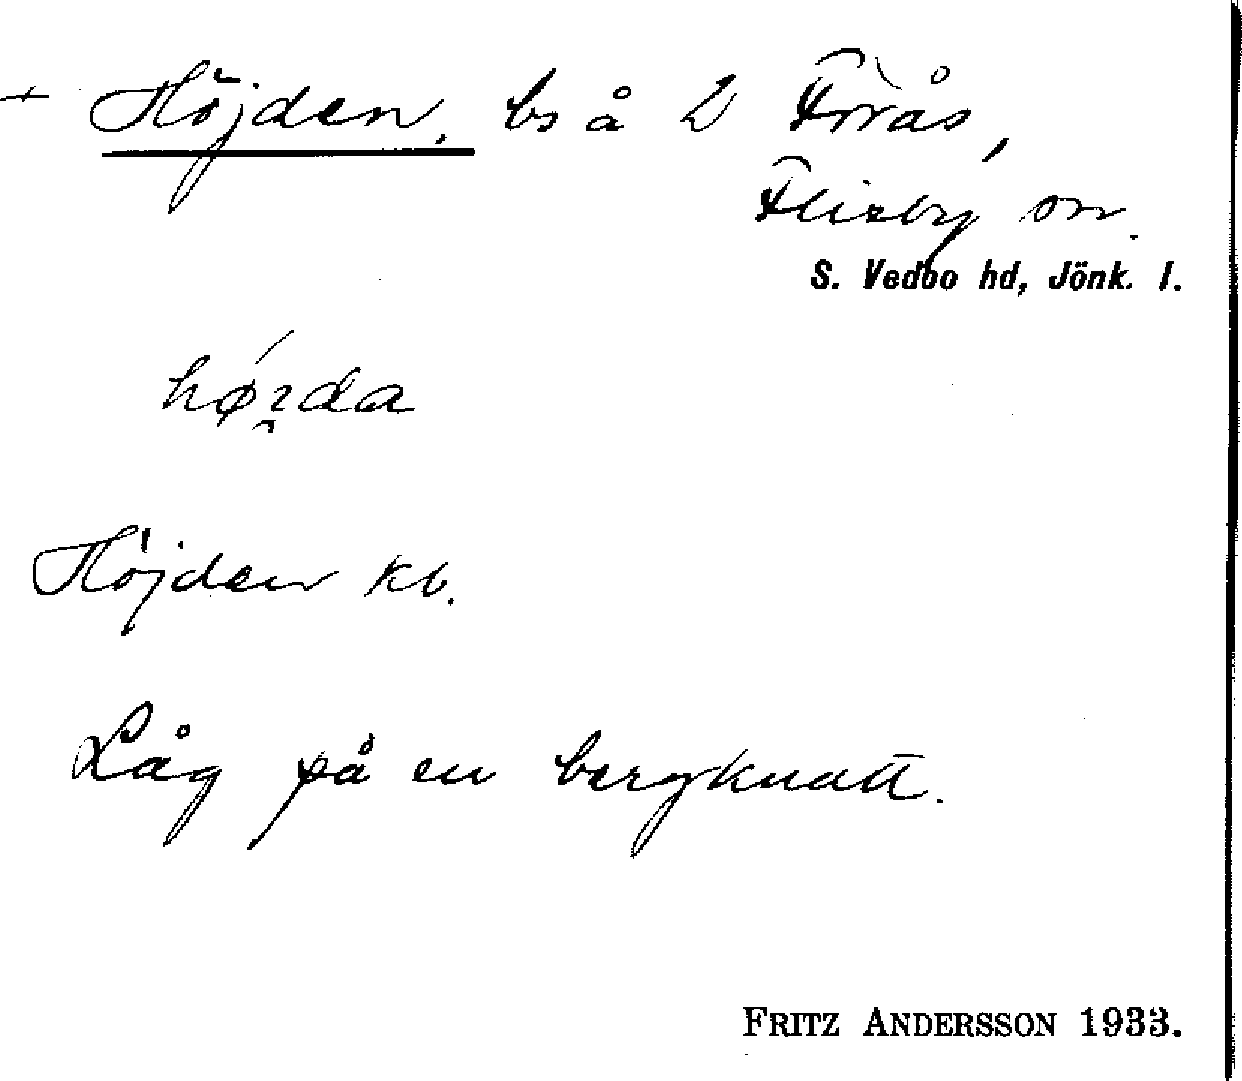 + Höjden, bs å 2 Forås,
Flisby sn.
S. Vedbo hd, Jönk. l.
Höjden kb.
Låg på en bergknatt.
FRITZ ANDERSSON 1933.